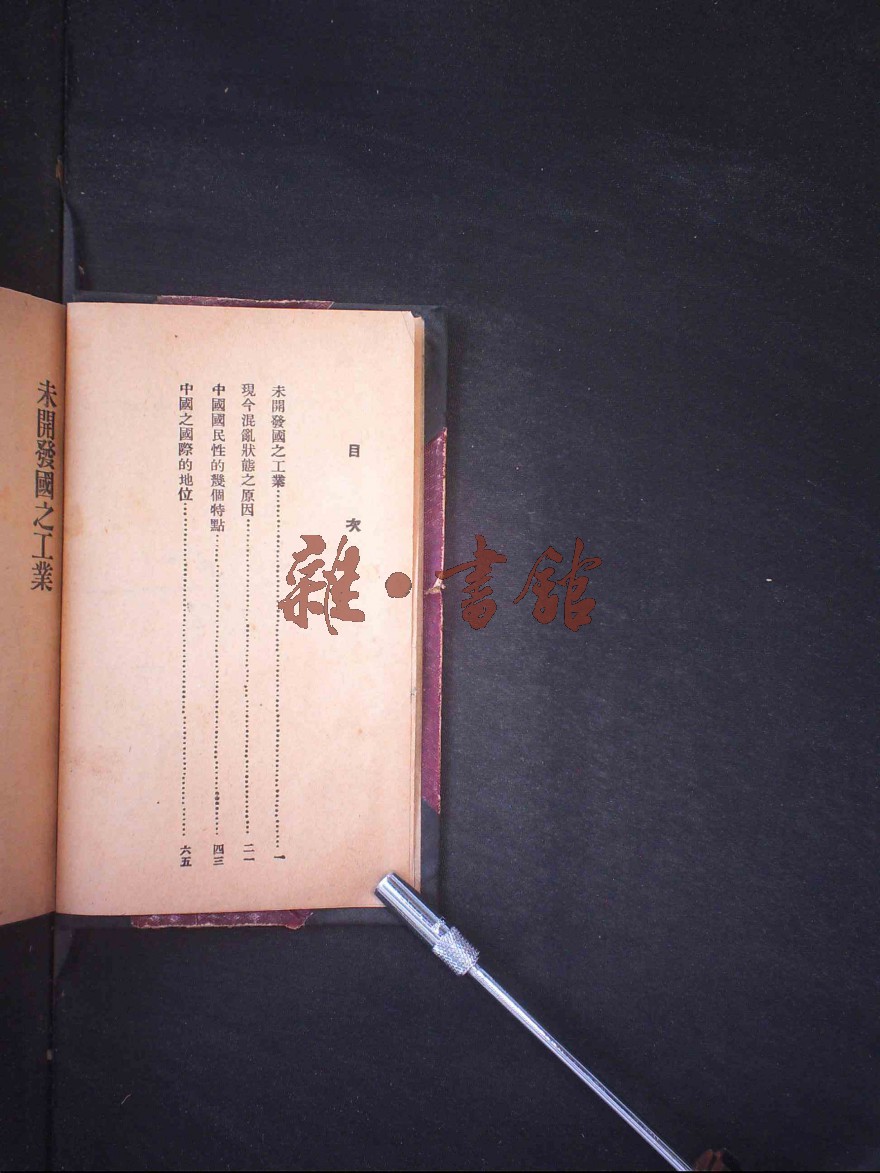 目次
未開發國之工業…………一
現今混亂狀態之原因…………二一
中國國民性的幾個特點…………四三
中國之國際的地位…………六五
未開發國之工業
雜·書館